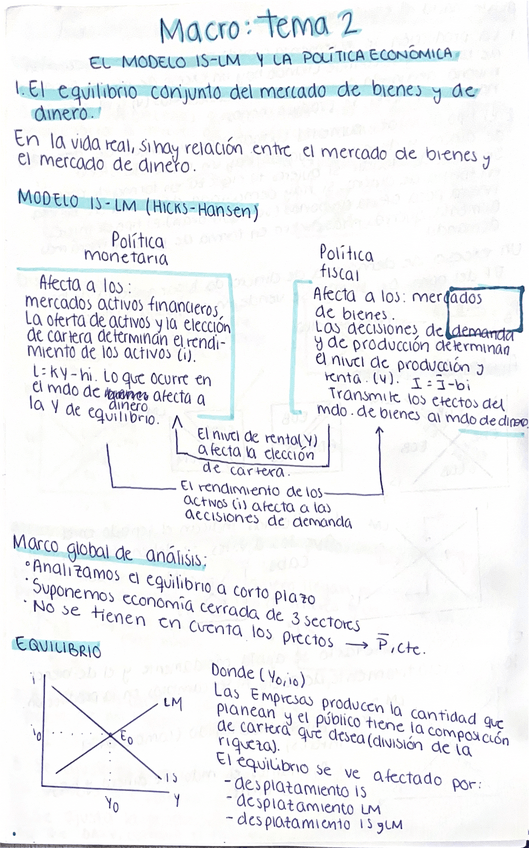 Macro: tema 2
EL MODELO IS-LM Y LA POLÍTICA ECONÓMICA
1. El equilibrio conjunto del mercado de bienes y de
dinero.
En la vida real, si hay relación entre el mercado de bienes y
el mercado de dinero.
MODELO IS-LM (HICKS-Hansen)
Política
monetaria
Afecta a los:
mercados activos financieros,
La oferta de activos y la elección
de cartera determinan el rendi-
miento de los activos (i).
L=KY-hi. Lo que ocurre en
el mdo de dinero afecta a
la Y de equilibrio.
Política
fiscal
Afecta a los: mercados
de bienes.
Las decisiones de demanda
y de producción determinan
el nivel de producción y
renta. (Y). I = Ī-bi
Transmite los efectos del
mdo. de bienes al mdo de dinero
El nivel de renta (Y)
afecta la elección
de cartera.
El rendimiento de los
activos (i) afecta a las
decisiones de demanda
Marco global de análisis:
· Analizamos el equilibrio a corto plazo
· Suponemos economía cerrada de 3 sectores
· No se tienen en cuenta los precios → P̄, cte.
EQUILIBRIO
i
LM
i₀
E₀
IS
Y₀
Y
Donde (Y₀, i₀)
Las Empresas producen la cantidad que
planean y el público tiene la composición
de cartera que desea (división de la
riqueza).
El equilibrio se ve afectado por:
- desplatamiento IS
- desplatamiento LM
- desplatamiento IS y LM